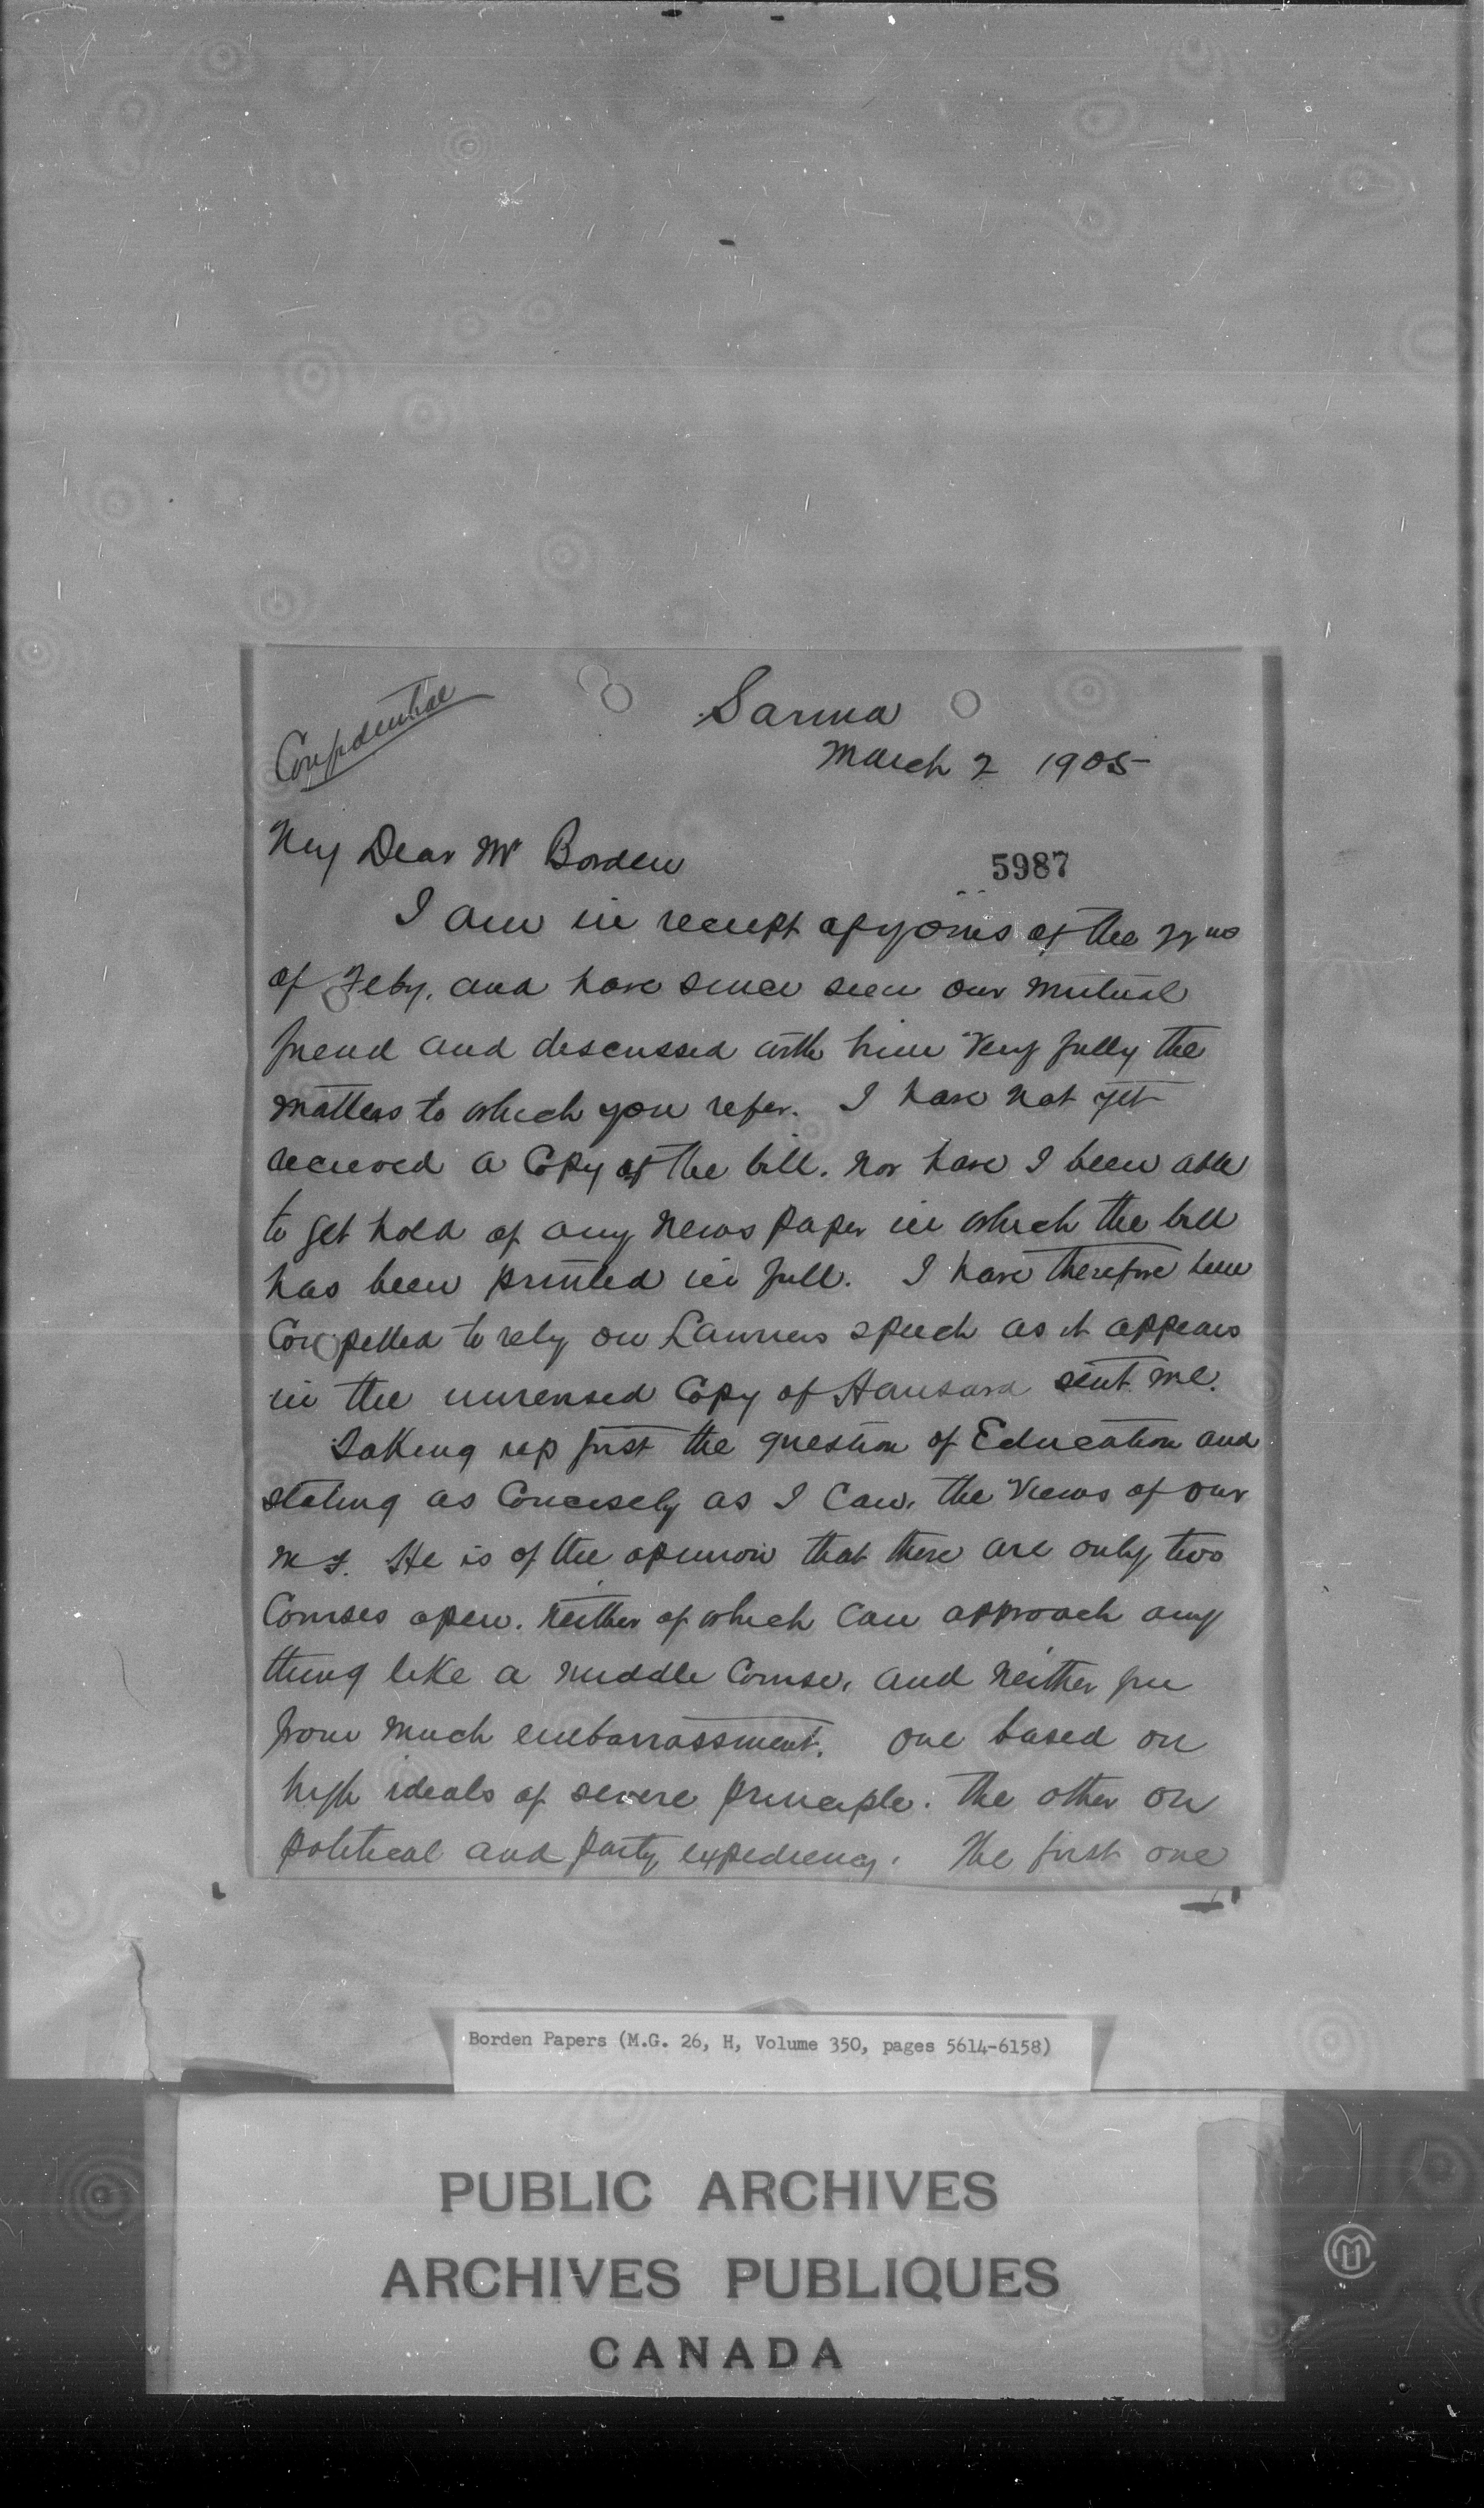 Confidential
Sarnia
March 2 1905
My Dear Mr Borden
5987
I am in receipt of yours of the 22nd
of Feby. and have since seen our mutual
friend and discussed with him very fully the
matters to which you refer. I have not yet
received a Copy of the bill. nor have I been able
to get hold of any news paper in which the bill
has been printed in full. I have therefore been
Compelled to rely on Lauriers speech as it appears
in the unrevised Copy of Hansard sent me.
Taking up first the question of Education and
stating as Concisely as I Can, the Views of our
M F. He is of the opinion that there are only two
Courses open. neither of which Can approach any
thing like a middle Course, and neither free
from much embarrassment. One based on
high ideals of severe principle. The other on
political and party expediency. The first one
Borden Papers (M.G. 26, H, Volume 350, pages 5614-6158)
PUBLIC ARCHIVES
ARCHIVES PUBLIQUES
CANADA